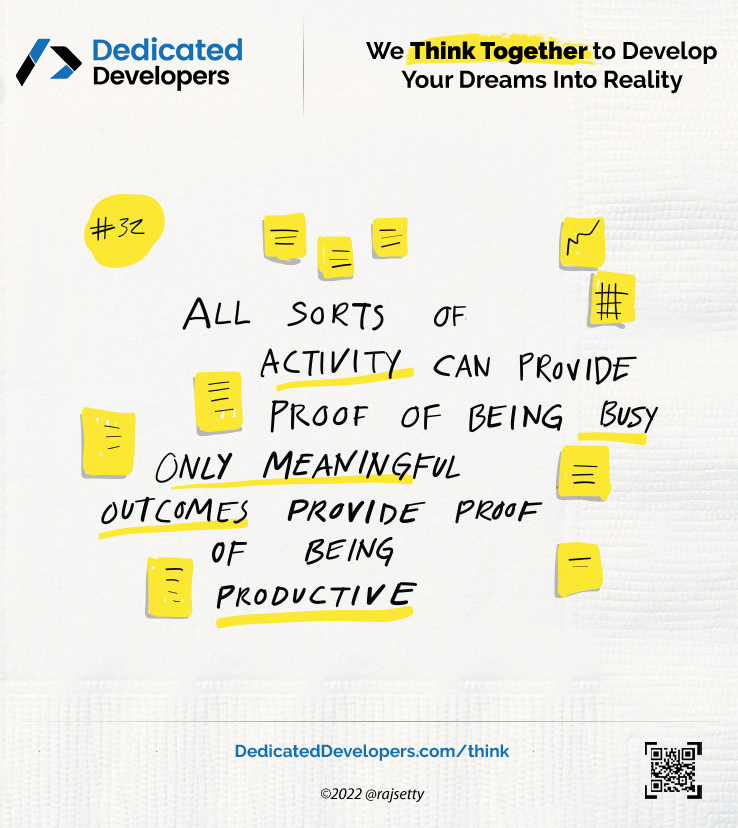 Dedicated
Developers
We Think Together to Develop
Your Dreams Into Reality
#32
ALL SORTS OF
ACTIVITY CAN PROVIDE
PROOF OF BEING BUSY
ONLY MEANINGFUL
OUTCOMES PROVIDE PROOF
OF BEING
PRODUCTIVE
DedicatedDevelopers.com/think
©2022 @rajsetty